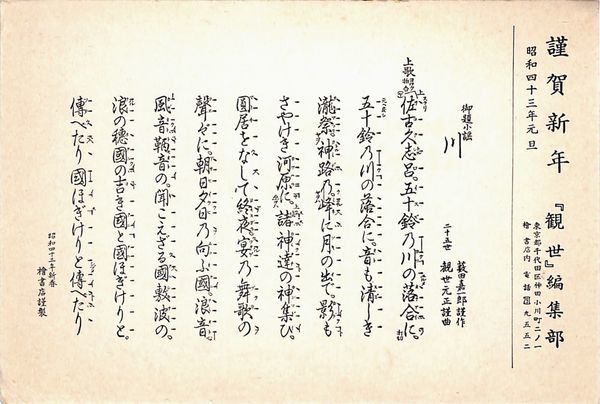 謹賀新年
昭和四十三年元旦
『観世』編集部
東京都千代田区神田小川町二ノ一
檜書店内 電話 九五五二
御題小謡
川
二十五世
薮田嘉一郎謹作
観世元正謹曲
上歌
佐古久志呂。五十鈴乃川の落合に。
五十鈴乃川の落合に。音も清しき
瀧祭神路乃。峰に月の出で。影も
さやけき河原に。諸神達の神集ひ。
圓居をなして終夜宴乃舞歌の
聲々に。朝日夕日乃向ふ國浪音
風音鞆音の。聞こえざる國敷波の。
浪の穂國の吉き國と國ほぎけりと。
傳べたり國ほぎけりと傳たり
昭和四十三年新春
檜書店謹製